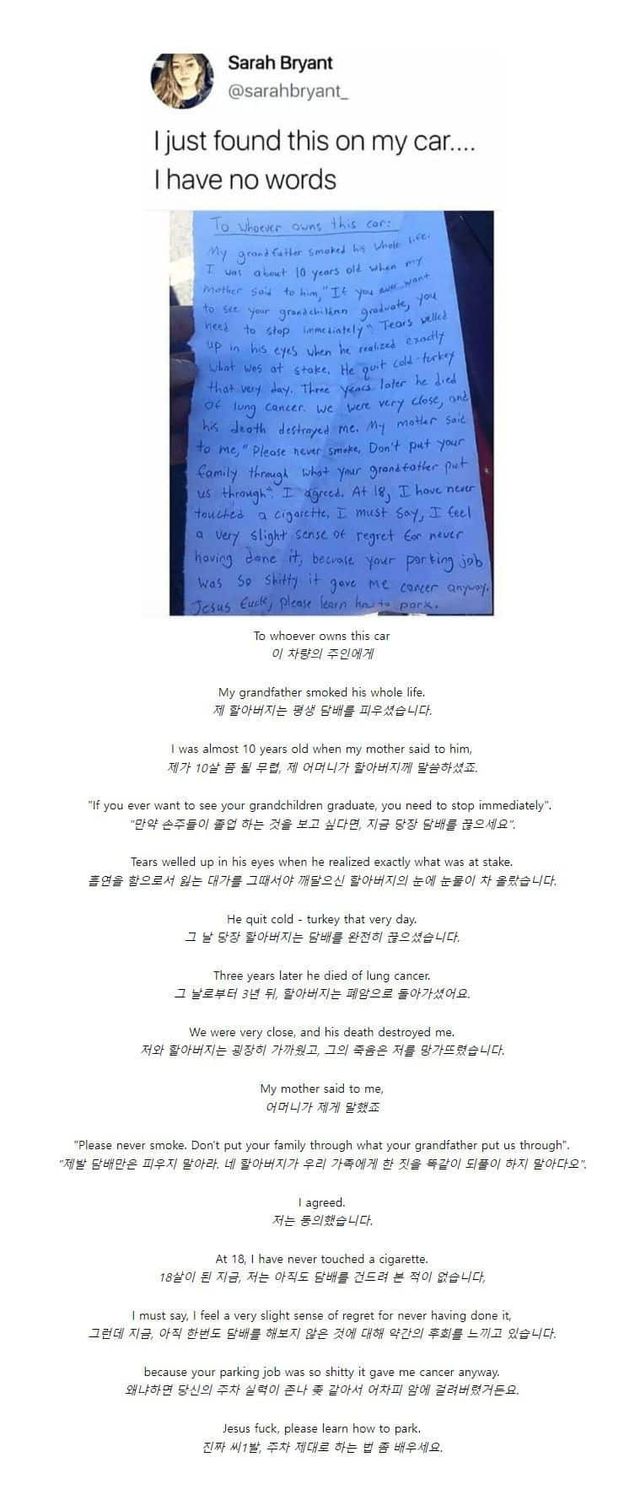 Sarah Bryant
@sarahbryant_
I just found this on my car....
I have no words
To whoever owns this car:
My grandfather smoked his whole life.
I was about 10 years old when my
mother said to him, "If you ever want
to see your grandchildren graduate, you
need to stop immediately". Tears welled
up in his eyes when he realized exactly
what was at stake. He quit cold-turkey
that very day. Three years later he died
of lung cancer. We were very close, and
his death destroyed me. My mother said
to me, "Please never smoke. Don't put your
family through what your grandfather put
us through". I agreed. At 18, I have never
touched a cigarette. I must say, I feel
a very slight sense of regret for never
having done it, because your parking job
was so shitty it gave me cancer anyway.
Jesus fuck, please learn how to park.
To whoever owns this car
이 차량의 주인에게
My grandfather smoked his whole life.
제 할아버지는 평생 담배를 피우셨습니다.
I was almost 10 years old when my mother said to him,
제가 10살 쯤 될 무렵, 제 어머니가 할아버지께 말씀하셨죠.
"If you ever want to see your grandchildren graduate, you need to stop immediately".
"만약 손주들이 졸업 하는 것을 보고 싶다면, 지금 당장 담배를 끊으세요".
Tears welled up in his eyes when he realized exactly what was at stake.
흡연을 함으로서 잃는 대가를 그때서야 깨달으신 할아버지의 눈에 눈물이 차 올랐습니다.
He quit cold - turkey that very day.
그 날 당장 할아버지는 담배를 완전히 끊으셨습니다.
Three years later he died of lung cancer.
그 날로부터 3년 뒤, 할아버지는 폐암으로 돌아가셨어요.
We were very close, and his death destroyed me.
저와 할아버지는 굉장히 가까웠고, 그의 죽음은 저를 망가뜨렸습니다.
My mother said to me,
어머니가 제게 말했죠
"Please never smoke. Don't put your family through what your grandfather put us through".
"제발 담배만은 피우지 말아라. 네 할아버지가 우리 가족에게 한 짓을 똑같이 되풀이 하지 말아다오".
I agreed.
저는 동의했습니다.
At 18, I have never touched a cigarette.
18살이 된 지금, 저는 아직도 담배를 건드려 본 적이 없습니다,
I must say, I feel a very slight sense of regret for never having done it,
그런데 지금, 아직 한번도 담배를 해보지 않은 것에 대해 약간의 후회를 느끼고 있습니다.
because your parking job was so shitty it gave me cancer anyway.
왜냐하면 당신의 주차 실력이 존나 좆 같아서 어차피 암에 걸려버렸거든요.
Jesus fuck, please learn how to park.
진짜 씨1발, 주차 제대로 하는 법 좀 배우세요.